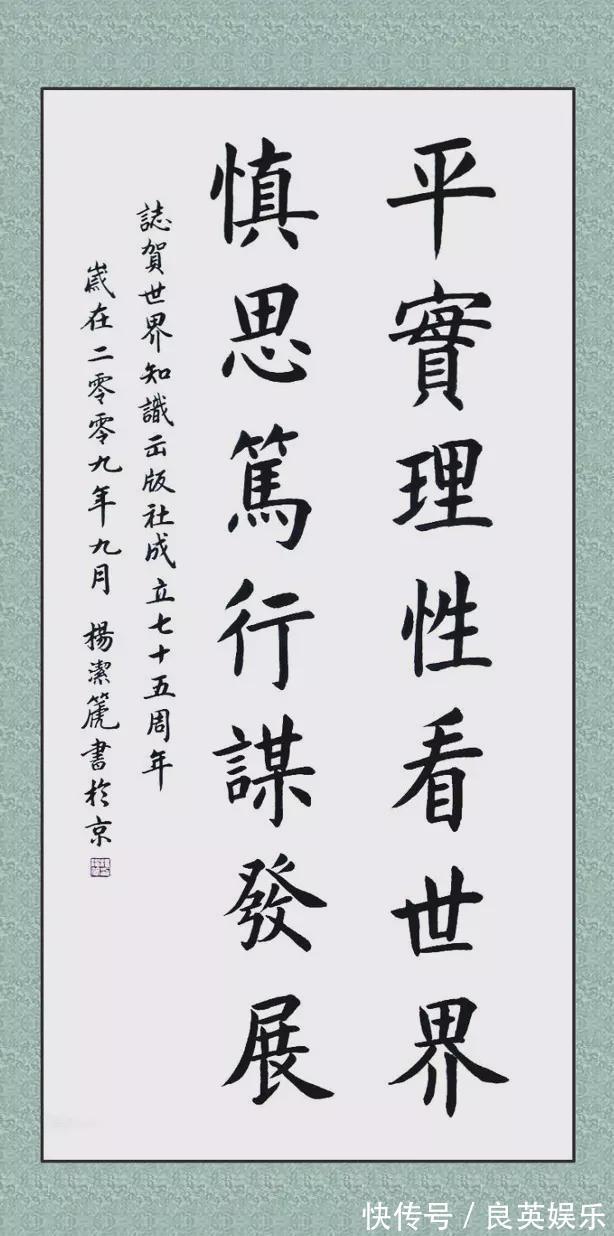 平實理性看世界
慎思篤行謀發展
誌賀世界知識出版社成立七十五周年
歲在二零零九年九月 楊潔篪書於京
快传号 / 良英娱乐